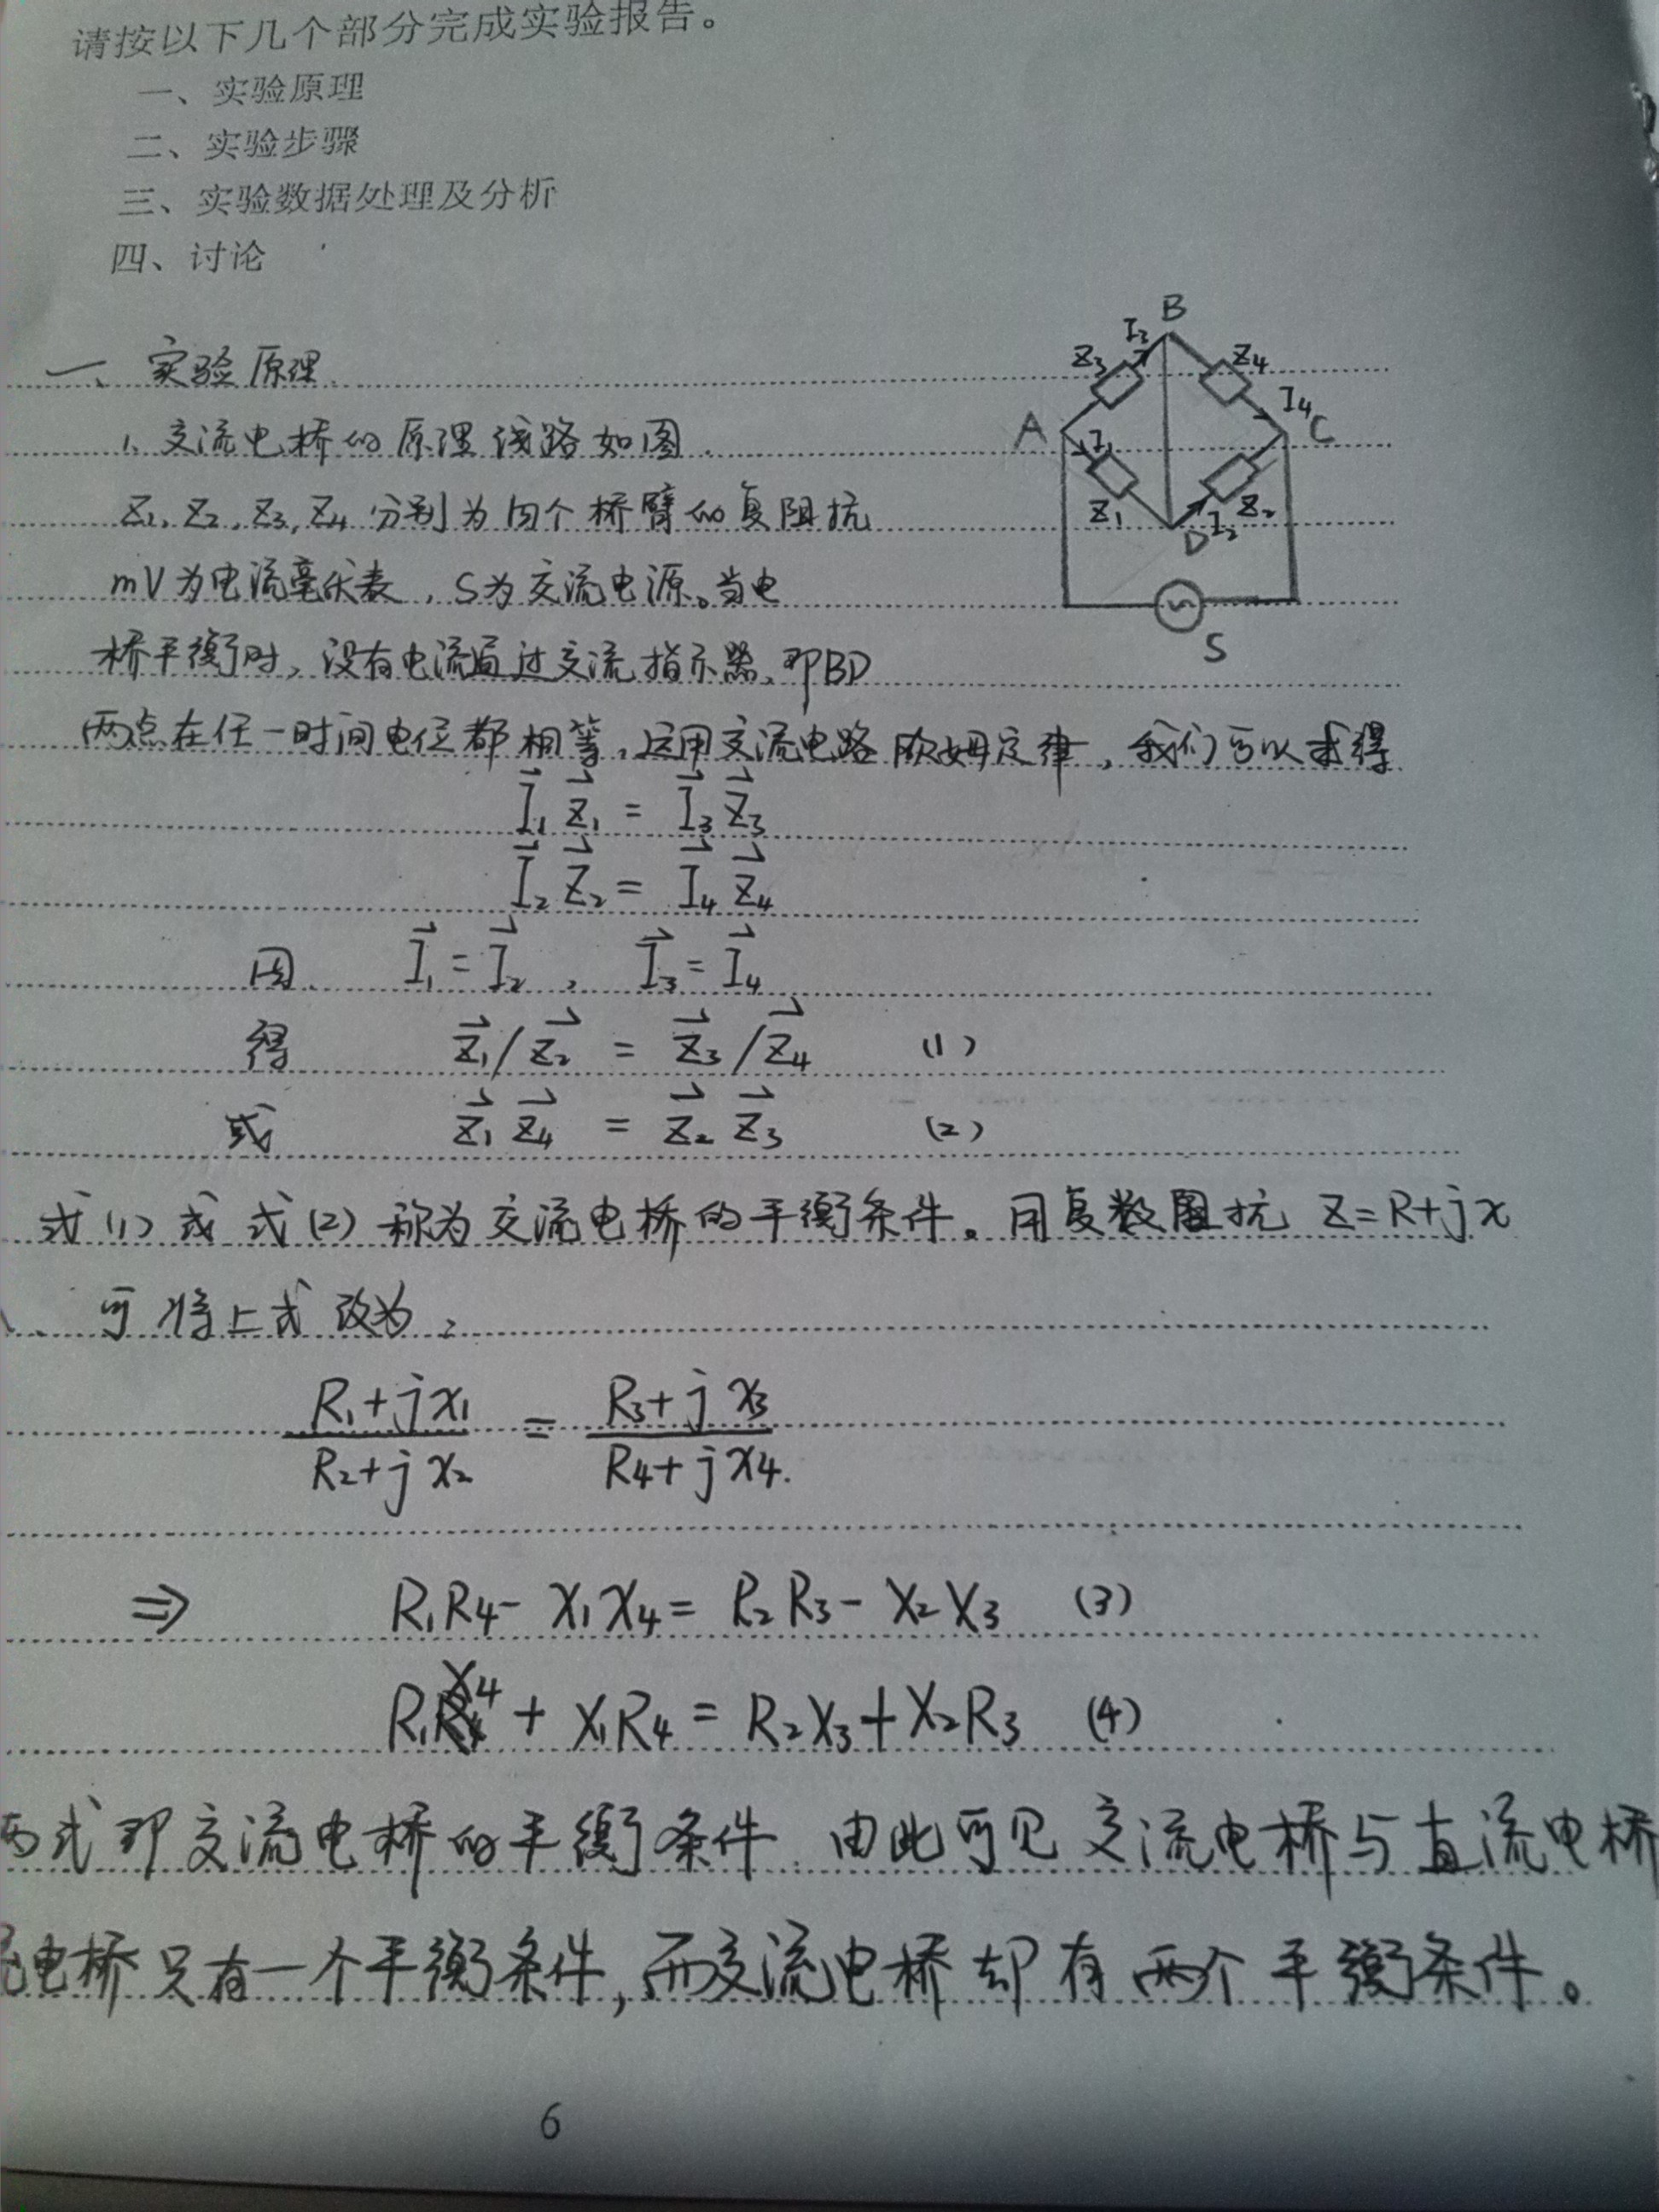 请按以下几个部分完成实验报告。
一、实验原理
二、实验步骤
三、实验数据处理及分析
四、讨论
一、实验原理.
1、交流电桥的原理线路如图.
Z1, Z2, Z3, Z4 分别为四个桥臂的复阻抗
mV为电流毫伏表, S为交流电源。当电
桥平衡时, 没有电流通过交流指示器, 即BD
两点在任一时间电位都相等, 运用交流电路欧姆定律, 我们可以求得
B
I3
Z3
Z4
I4
A
C
I1
Z1
Z2
D
I2
S
I⃗1 Z⃗1 = I⃗3 Z⃗3
I⃗2 Z⃗2 = I⃗4 Z⃗4
因 I⃗1 = I⃗2 , I⃗3 = I⃗4
得 Z⃗1/Z⃗2 = Z⃗3/Z⃗4 (1)
或 Z⃗1 Z⃗4 = Z⃗2 Z⃗3 (2)
式(1)或式(2)称为交流电桥的平衡条件。用复数阻抗 Z=R+jx
可将上式改为:
(R1+jx1)/(R2+jx2) = (R3+jx3)/(R4+jx4).
⇒ R1R4- X1X4= R2R3- X2X3 (3)
R1X4 + X1R4 = R2X3+X2R3 (4)
两式即交流电桥的平衡条件. 由此可见交流电桥与直流电桥
电桥只有一个平衡条件, 而交流电桥却有两个平衡条件。
6